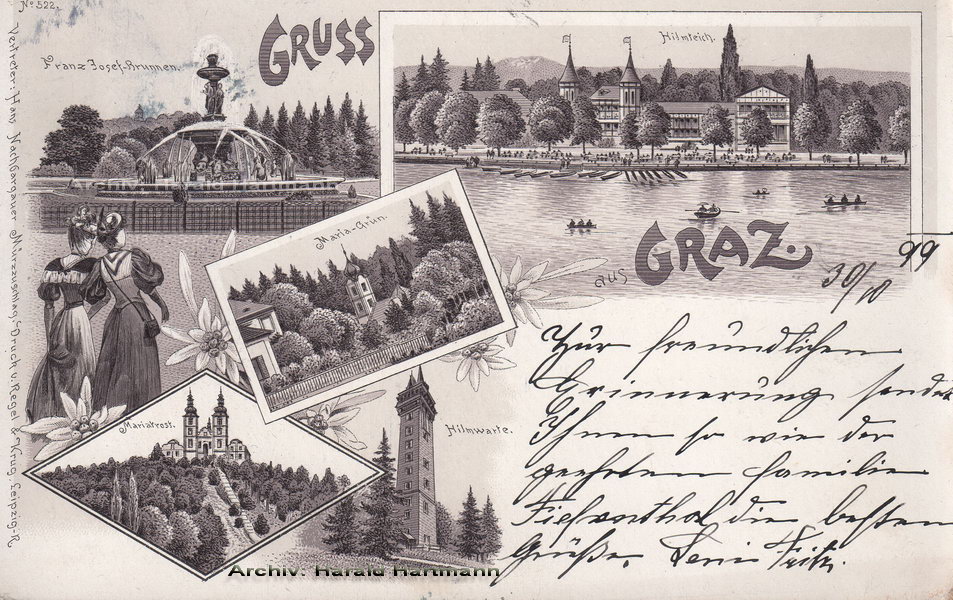 No 522.
GRUSS
Franz Josef-Brunnen.
Hilmteich.
Maria-Grün.
aus GRAZ.
30/10 99
Mariatrost.
Hilmwarte.
Zur freundlichen
Erinnerung sendet
Ihnen so wie der
geehrten Familie
die besten
Grüße. Fritz.
Vertreter: Hans Nachbargauer Mürzzuschlag, Druck v. Regel & Krug, Leipzig-R.
Archiv. Harald Hartmann
Archiv. Harald Hartmann